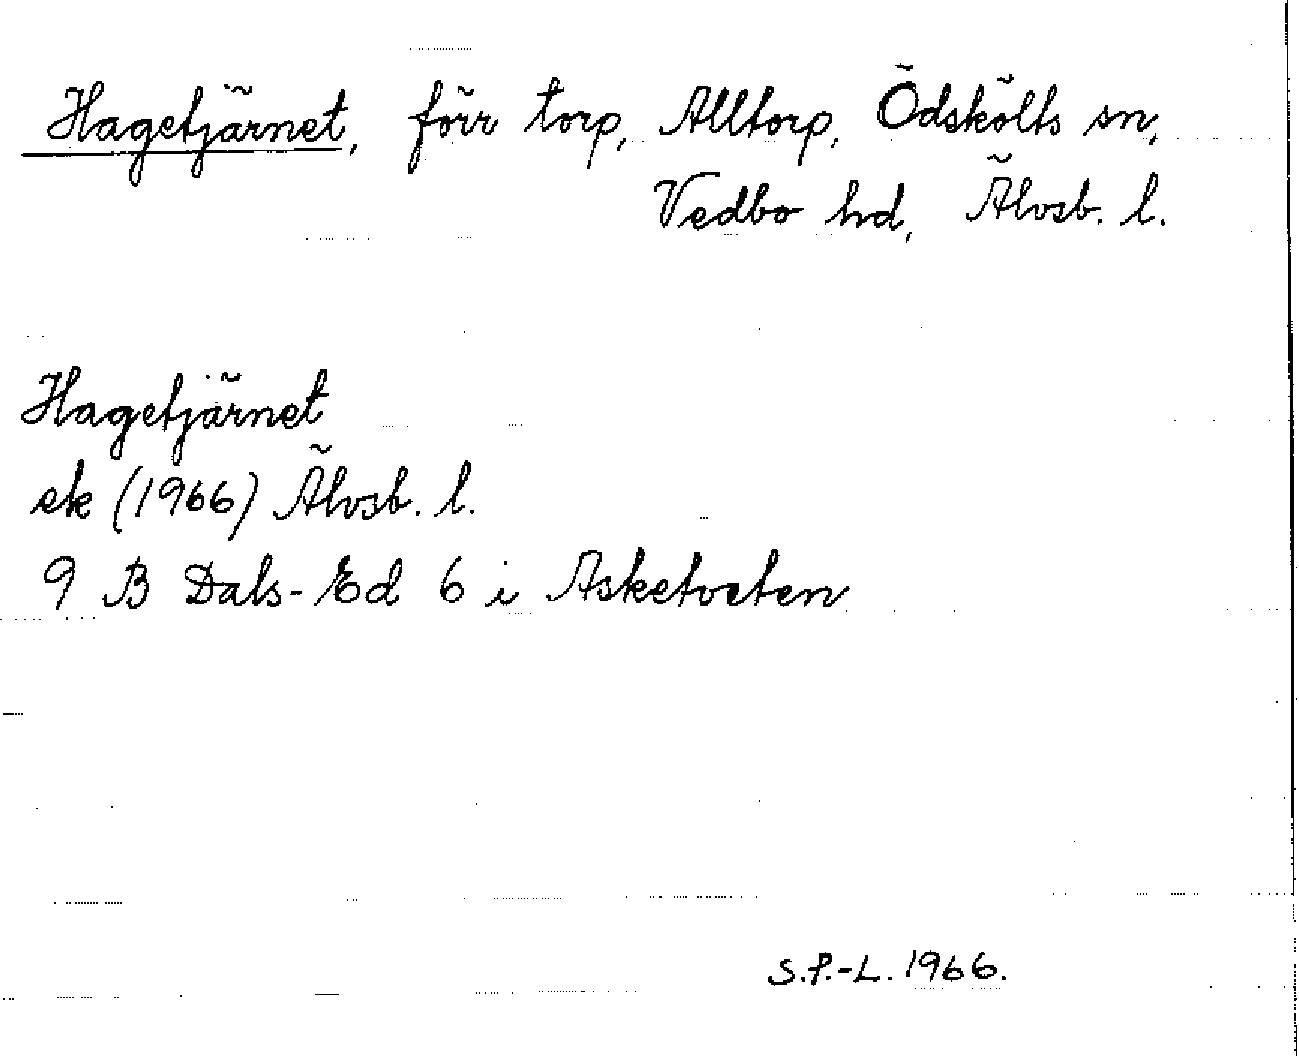 Hagetjärnet, förr torp, Alltorp, Ödskölts sn,
Vedbo hd, Älvsb. l.
Hagetjärnet
ek (1966) Älvsb. l.
9 B Dals-Ed 6 i Asketveten
S.P.-L. 1966.